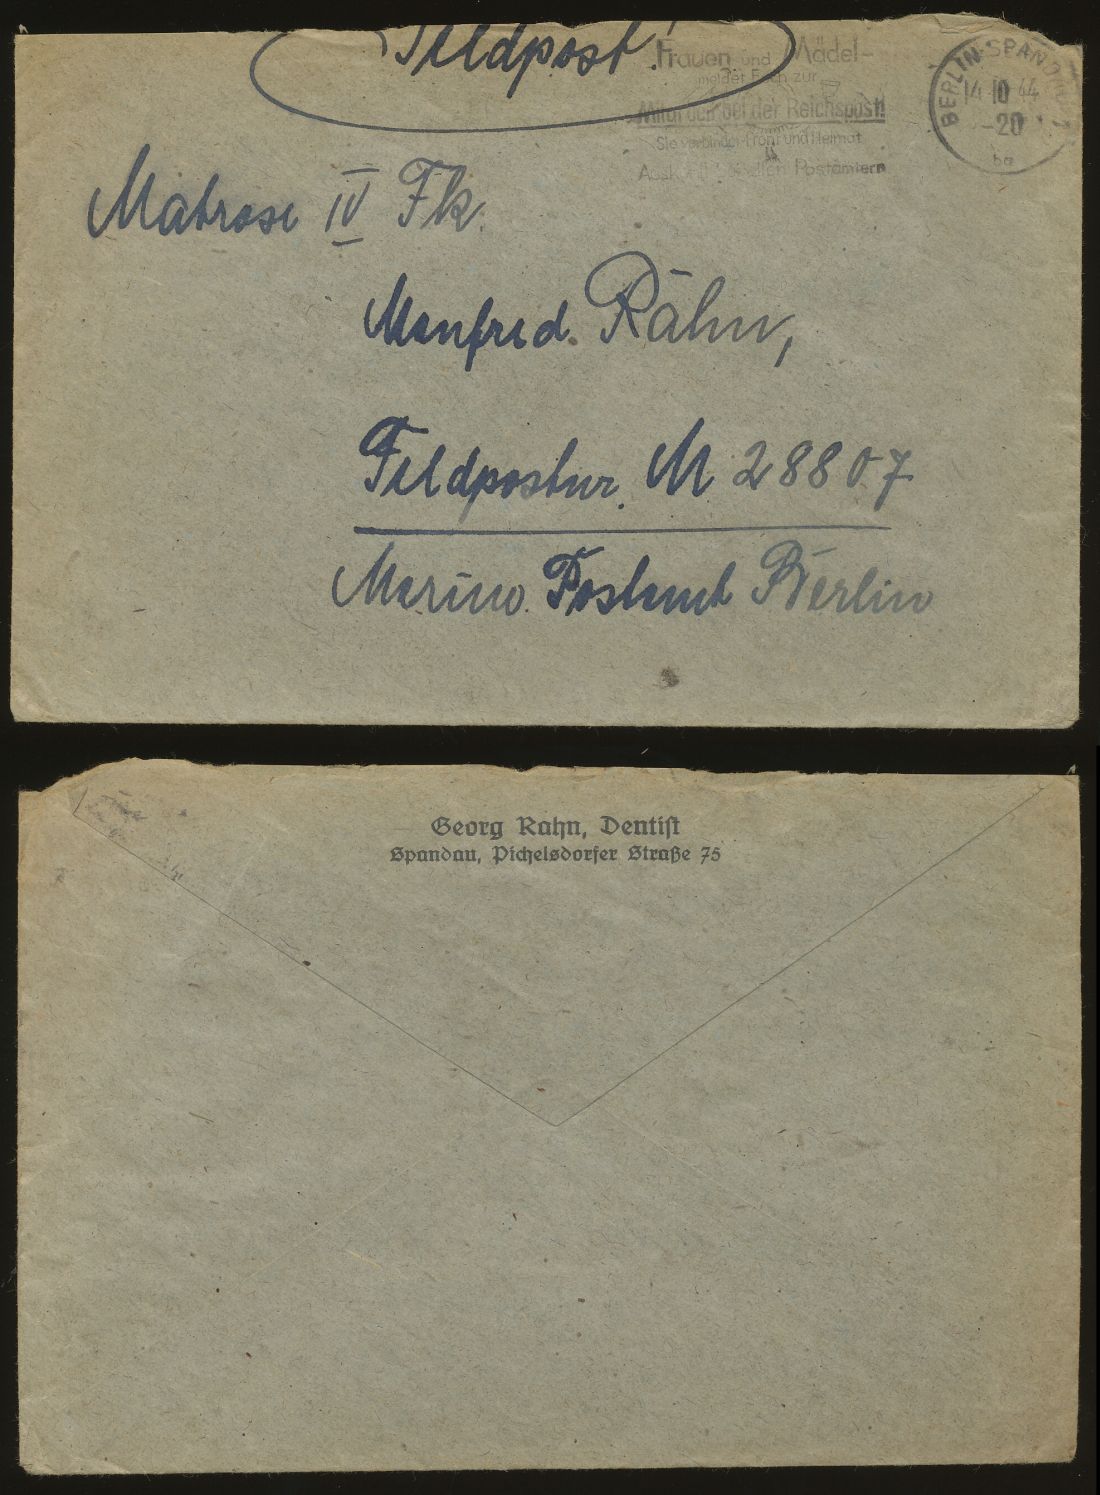 Feldpost!
Frauen und Mädel-
meldet Euch zur
Mitarbeit bei der Reichspost!
Sie verbindet Front und Heimat
Auskunft Postämtern
BERLIN-SPANDAU 1
14.10.44
-20
ba
Matrose IV Fk.
Manfred Rahn,
Feldpostnr. M 28807
Marine Postamt Berlin
Georg Rahn, Dentist
Spandau, Pichelsdorfer Straße 75